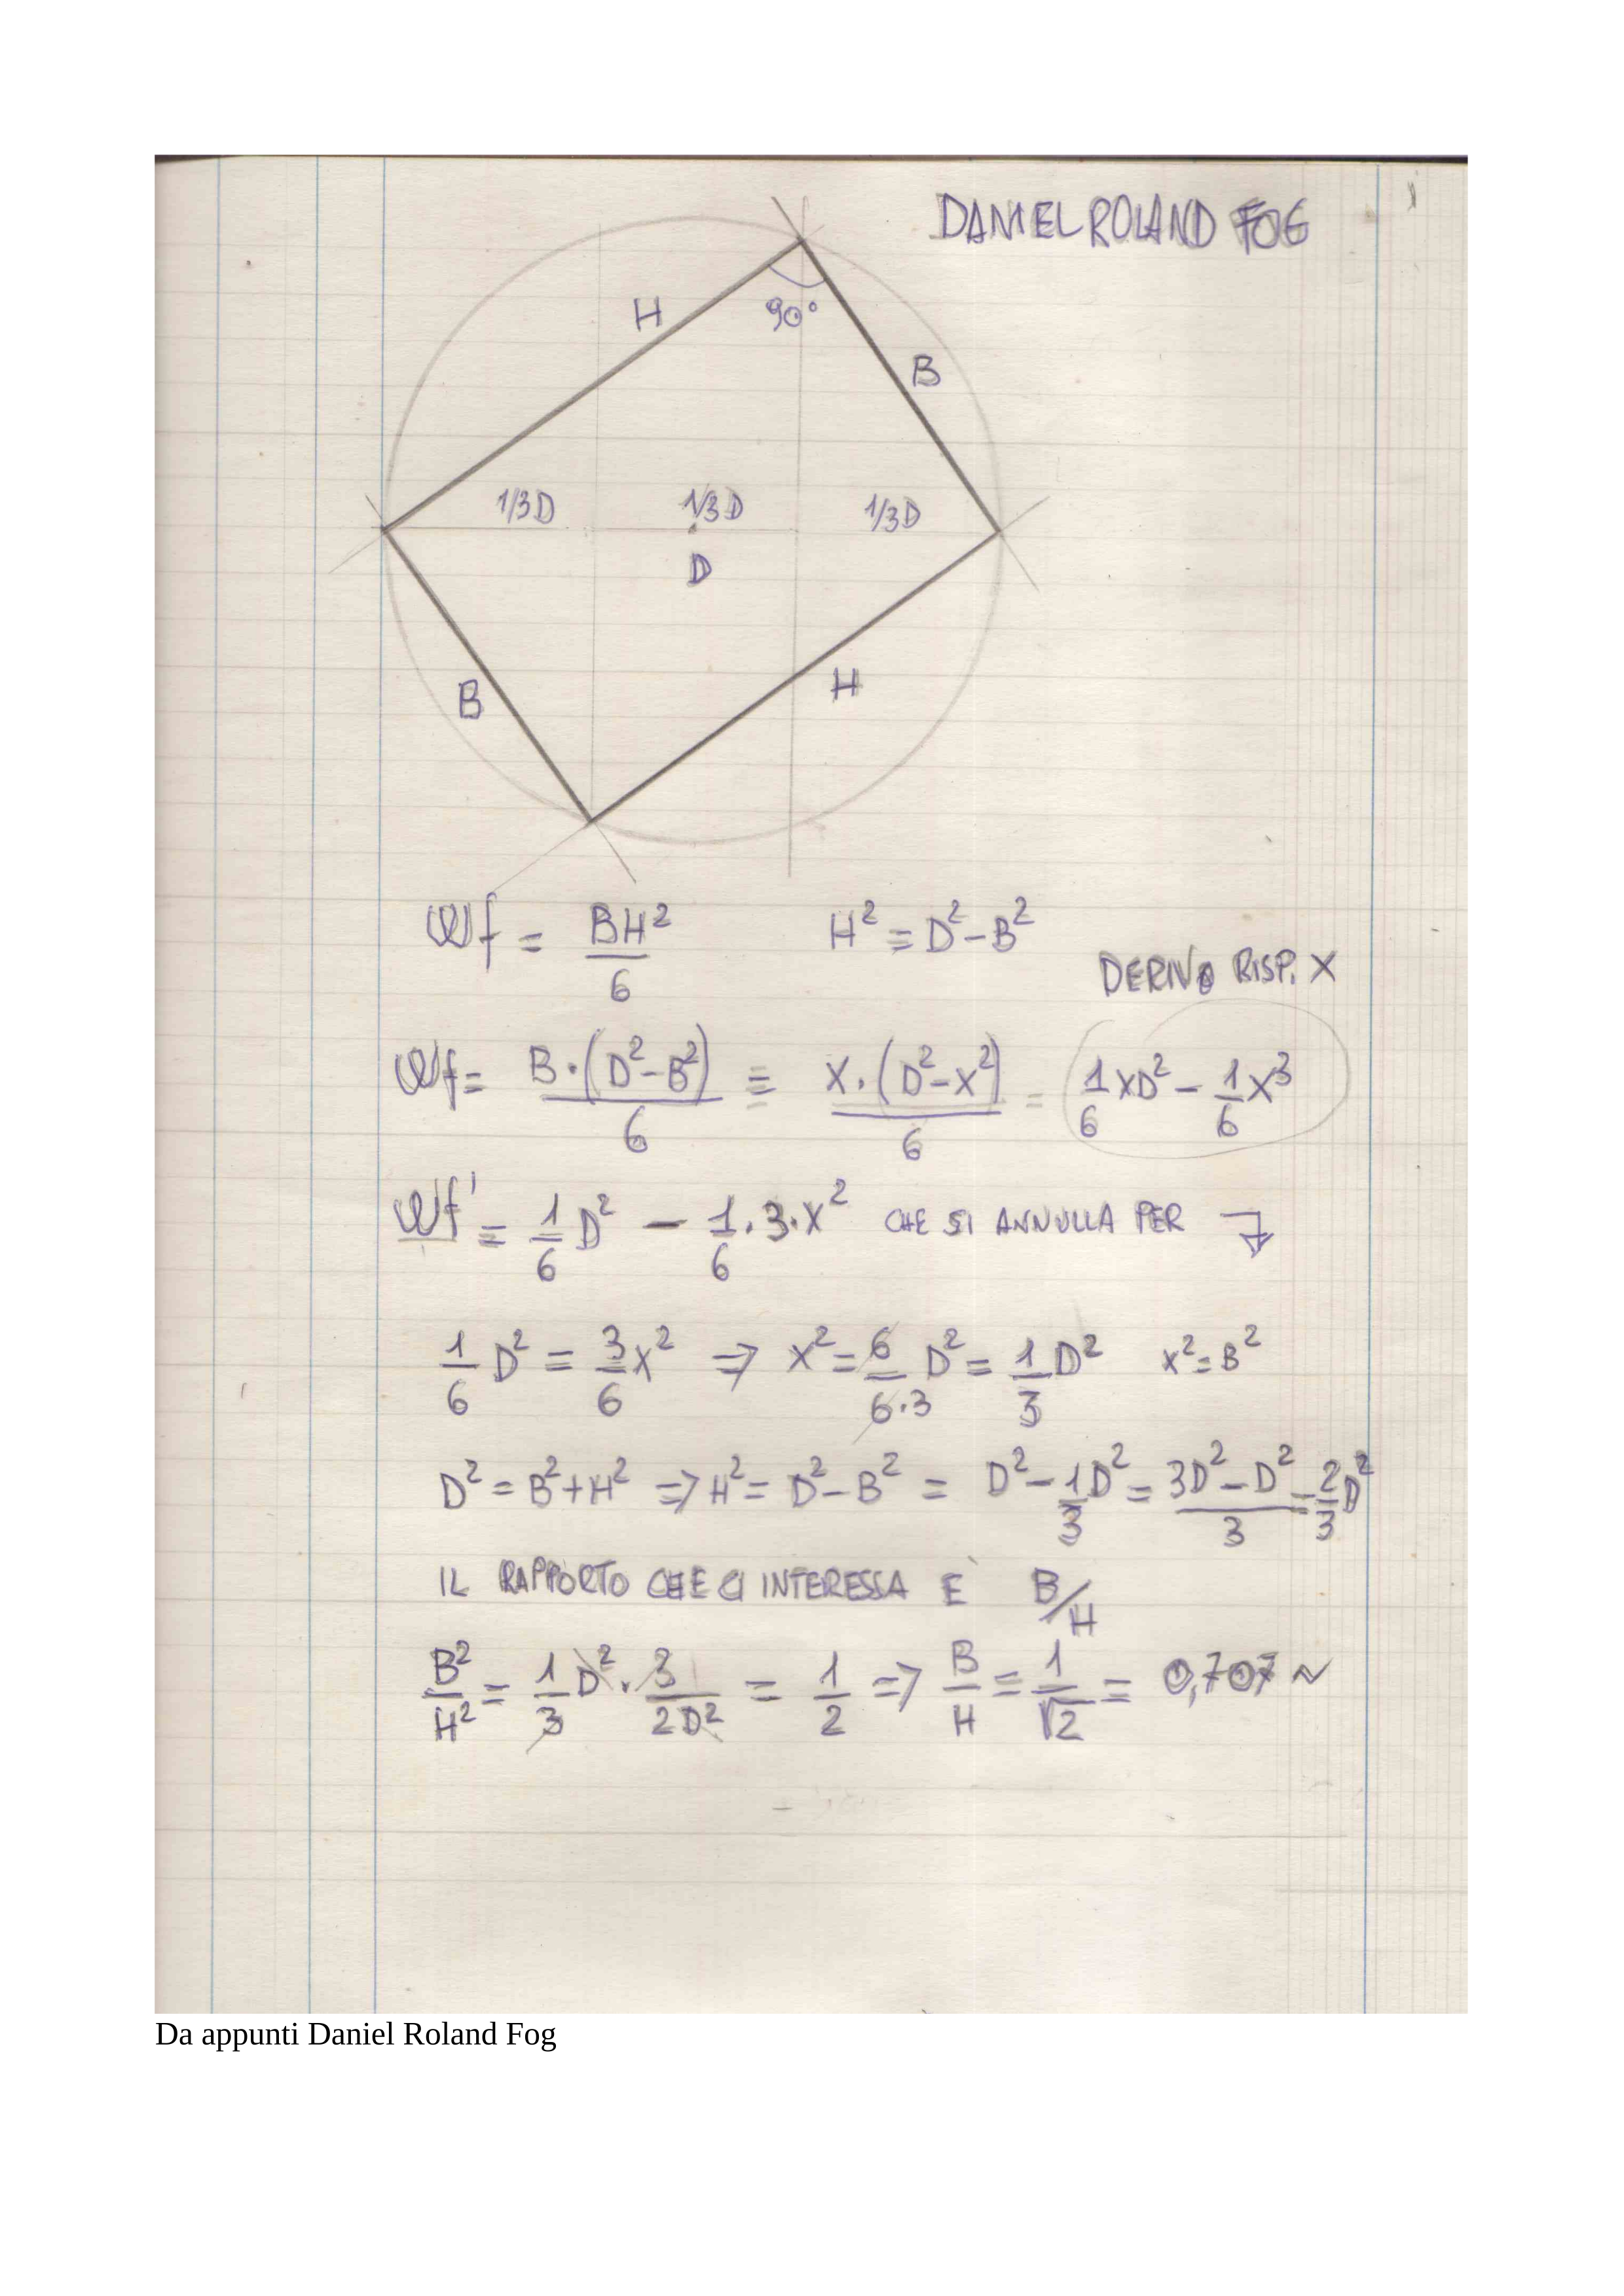 DANIEL ROLAND FOG
H
90°
B
1/3D 1/3D 1/3D
D
B
H
Wf = BH²/6 H² = D²-B²
DERIVO RISP. X
Wf = B·(D²-B²)/6 = X·(D²-X²)/6 = 1/6 XD² - 1/6 X³
Wf' = 1/6 D² - 1/6·3·X² CHE SI ANNULLA PER
1/6 D² = 3/6 X² => X² = 6/6·3 D² = 1/3 D² X² = B²
D² = B²+H² => H² = D²-B² = D²-1/3D² = 3D²-D²/3 = 2/3 D²
IL RAPPORTO CHE CI INTERESSA È B/H
B²/H² = 1/3 D² · 3/2D² = 1/2 => B/H = 1/√2 = 0,707 ~
Da appunti Daniel Roland Fog